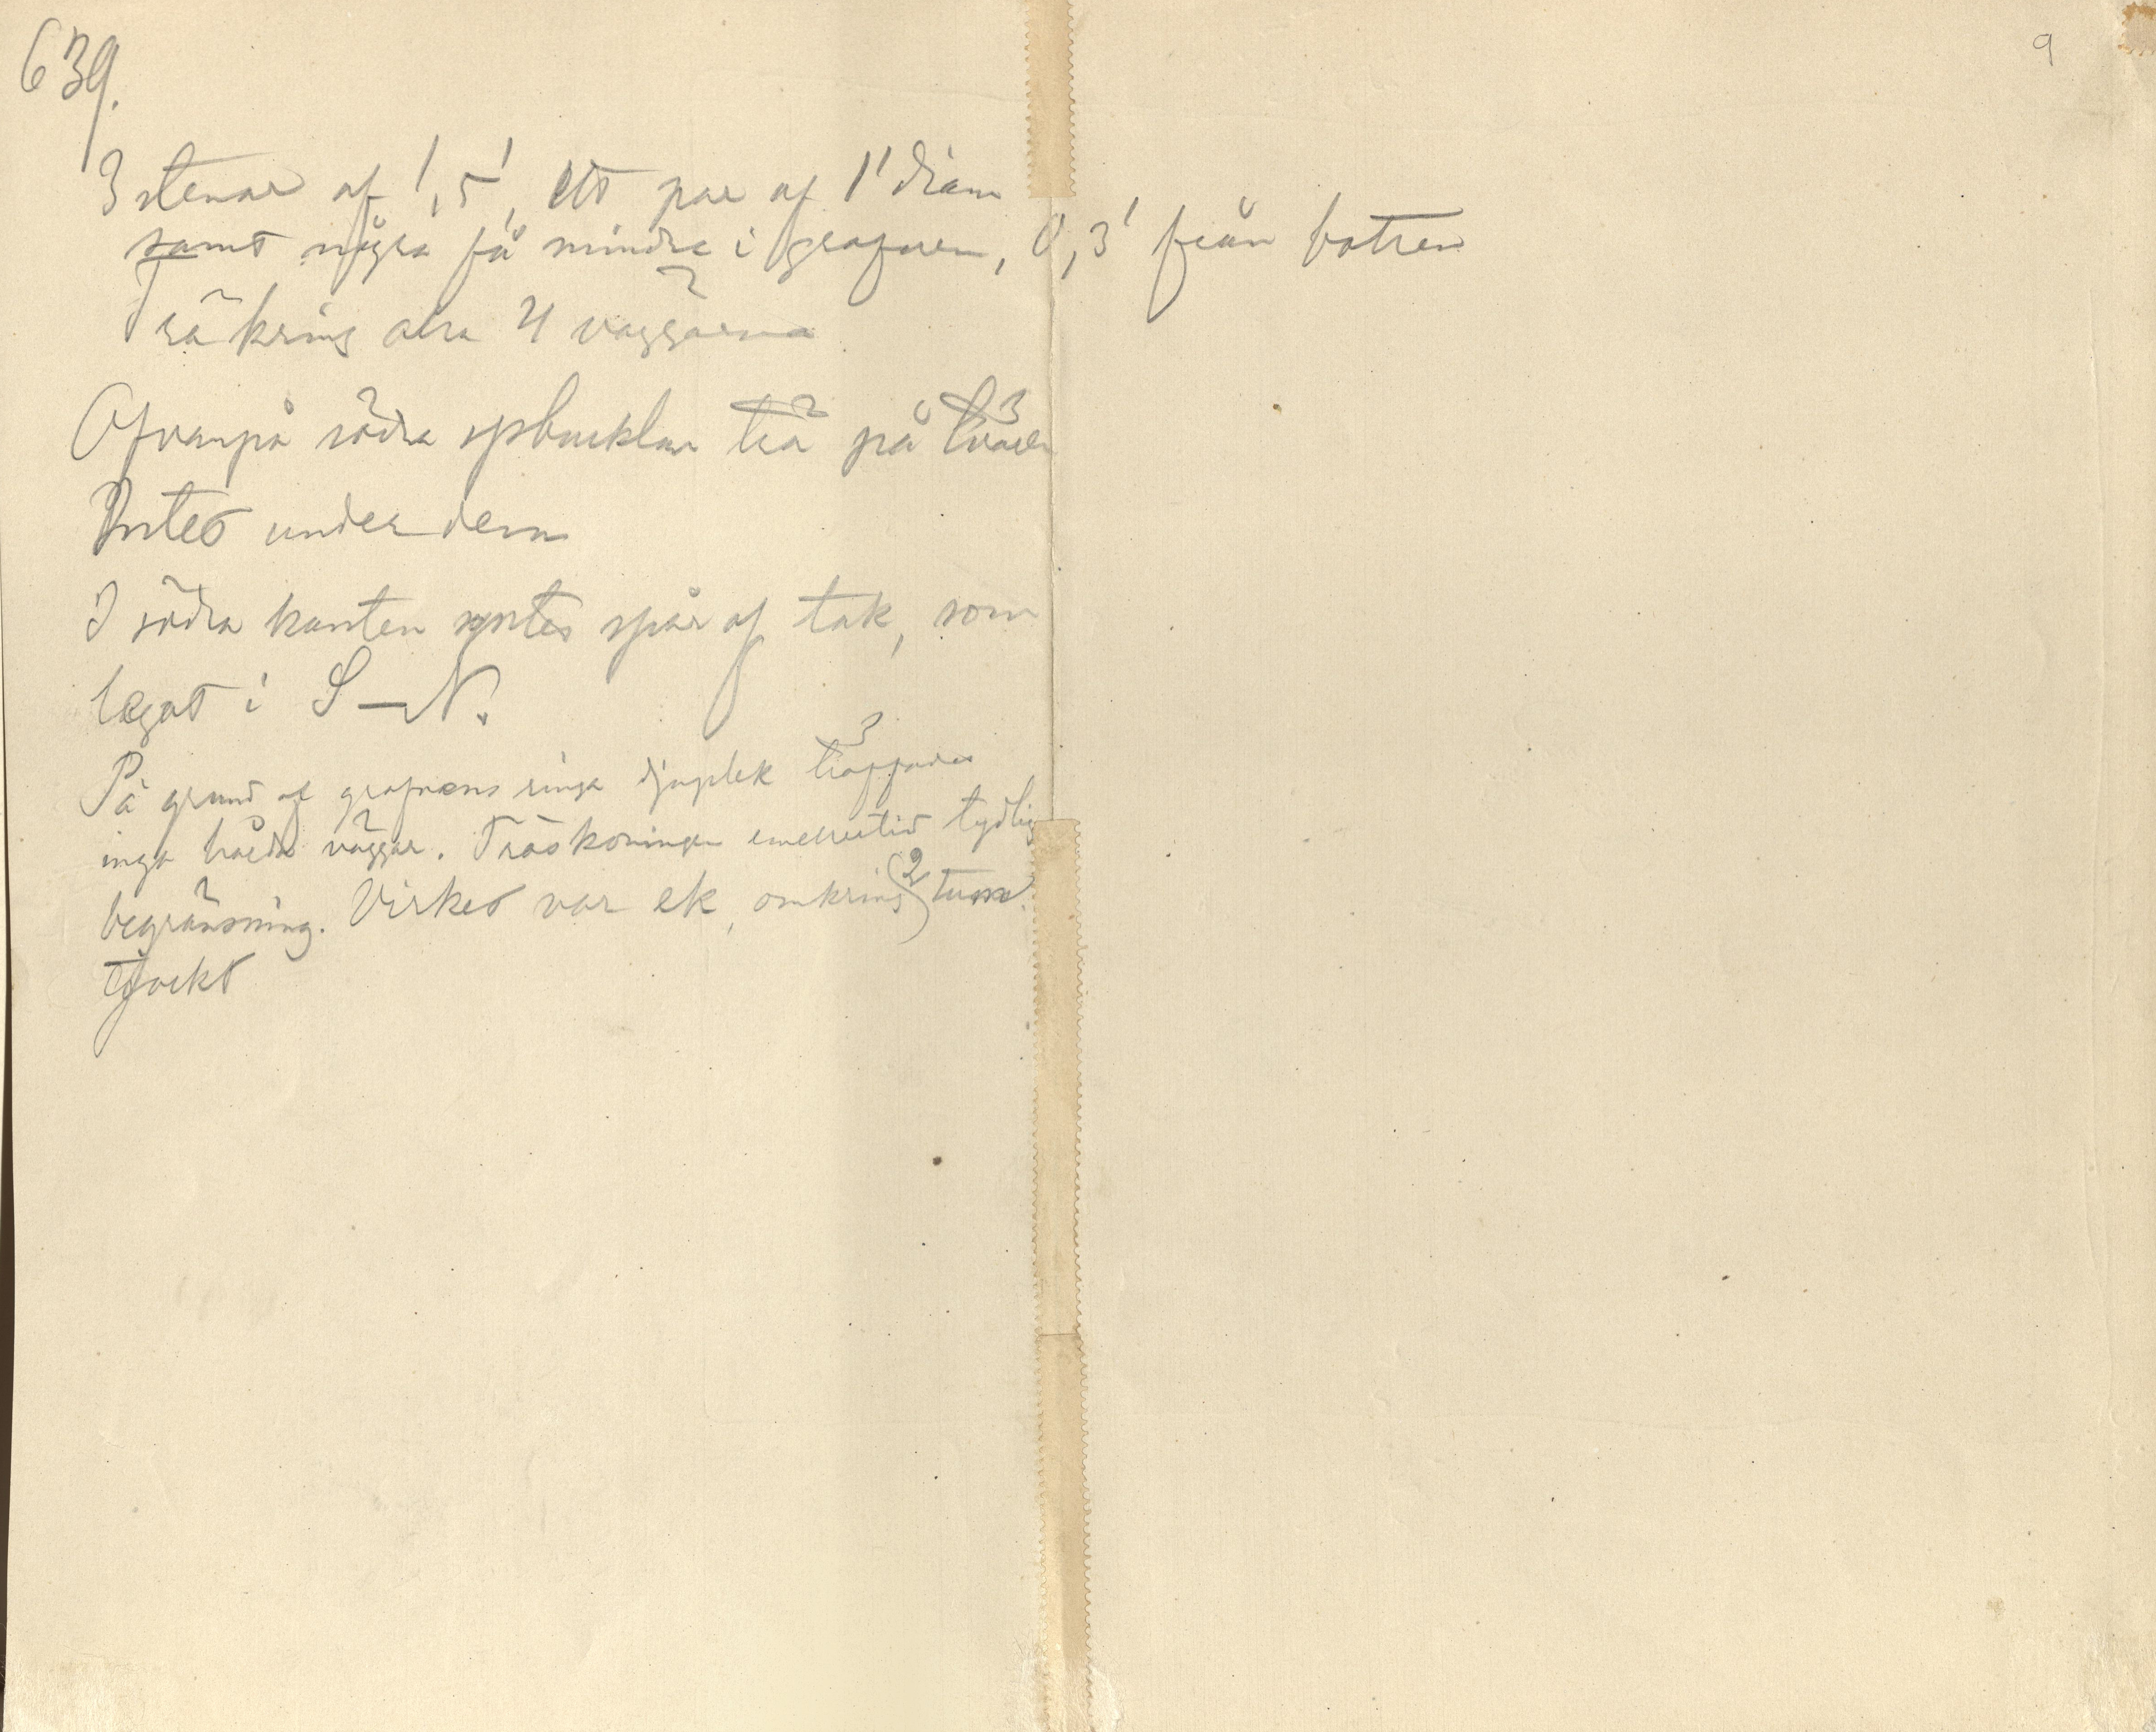 639.
9
3 stenar af 1,5', ett par af 1' diam
samt några få mindre i grafven, 0,3' från botten
Trä kring alla 4 väggarna
Ofvanpå södra spbucklan trä på tvären
Intet under dem
I södra kanten syntes spår af tak, som
legat i S–N.
På grund af grafvens ringa djuplek träffades
inga hårda väggar. Träskoningen emellertid tydlig
begränsning. Virket var ek, omkring 2 tum
tjockt